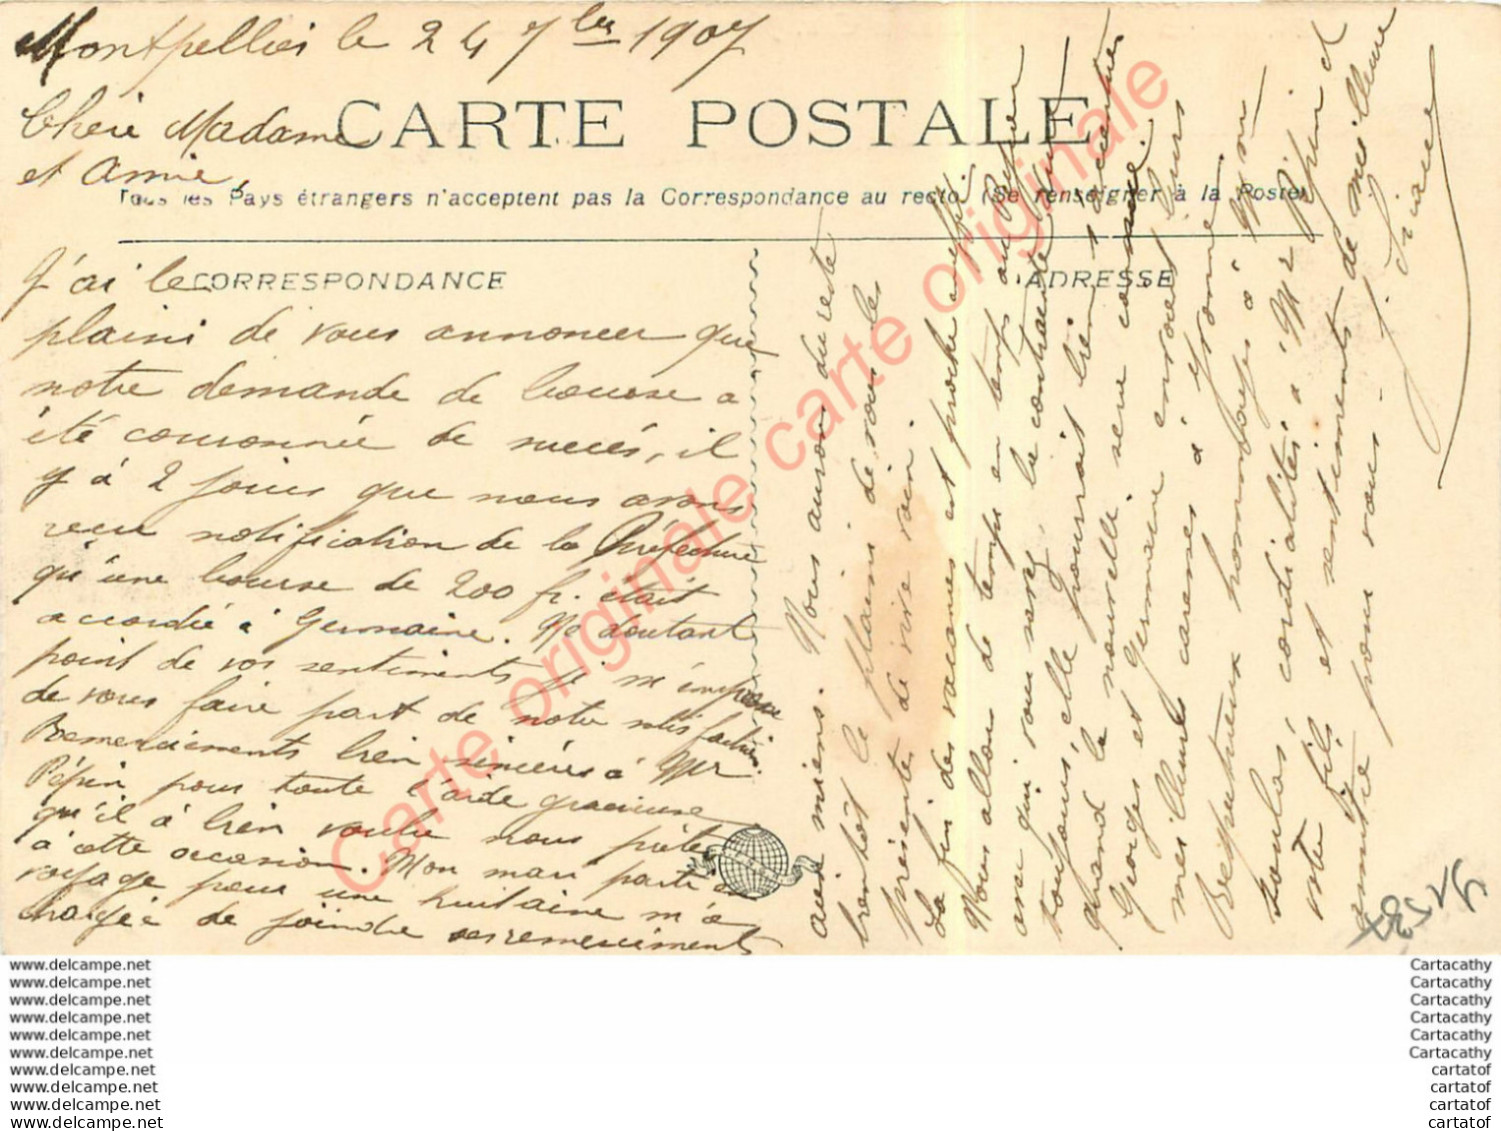 Montpellier le 24 7bre 1907
CARTE POSTALE
Chère Madame
et Amie,
Tous les Pays étrangers n'acceptent pas la Correspondance au recto. (Se renseigner à la Poste)
CORRESPONDANCE
ADRESSE
J'ai le
plaisir de vous annoncer que
notre demande de bourse a
été couronnée de succès, il
y a 2 jours que nous avons
reçu notification de la Préfecture
qu'une bourse de 200 fr. était
accordée à Germaine. Ne doutant
point de vos sentiments je m'empresse
de vous faire part de notre satisfaction.
Remerciements bien sincères à Mr
Pépin pour toute l'aide gracieuse
qu'il a bien voulu nous prêter
à cette occasion. Mon mari parti en
voyage pour une huitaine m'a
chargée de joindre ses remerciements
aux miens. Nous aurons du reste
bientôt le plaisir de vous les
présenter de vive voix.
La fin des vacances est proche
Nous allons de temps en temps au
avec qui vous savez, la
toujours, elle pourrait bien s'accentuer
quand la nouvelle sera connue.
Georges et Germaine envoient leurs
meilleures caresses à Yvonne
Respectueux hommages à Mme
cordialités à Mr Pépin et
votre fils et sentiments de meilleure
amitié pour vous.
Carte originale carte originale carte originale
www.delcampe.net
www.delcampe.net
www.delcampe.net
www.delcampe.net
www.delcampe.net
www.delcampe.net
www.delcampe.net
www.delcampe.net
www.delcampe.net
www.delcampe.net
Cartacathy
Cartacathy
Cartacathy
Cartacathy
Cartacathy
Cartacathy
cartatof
cartatof
cartatof
cartatof